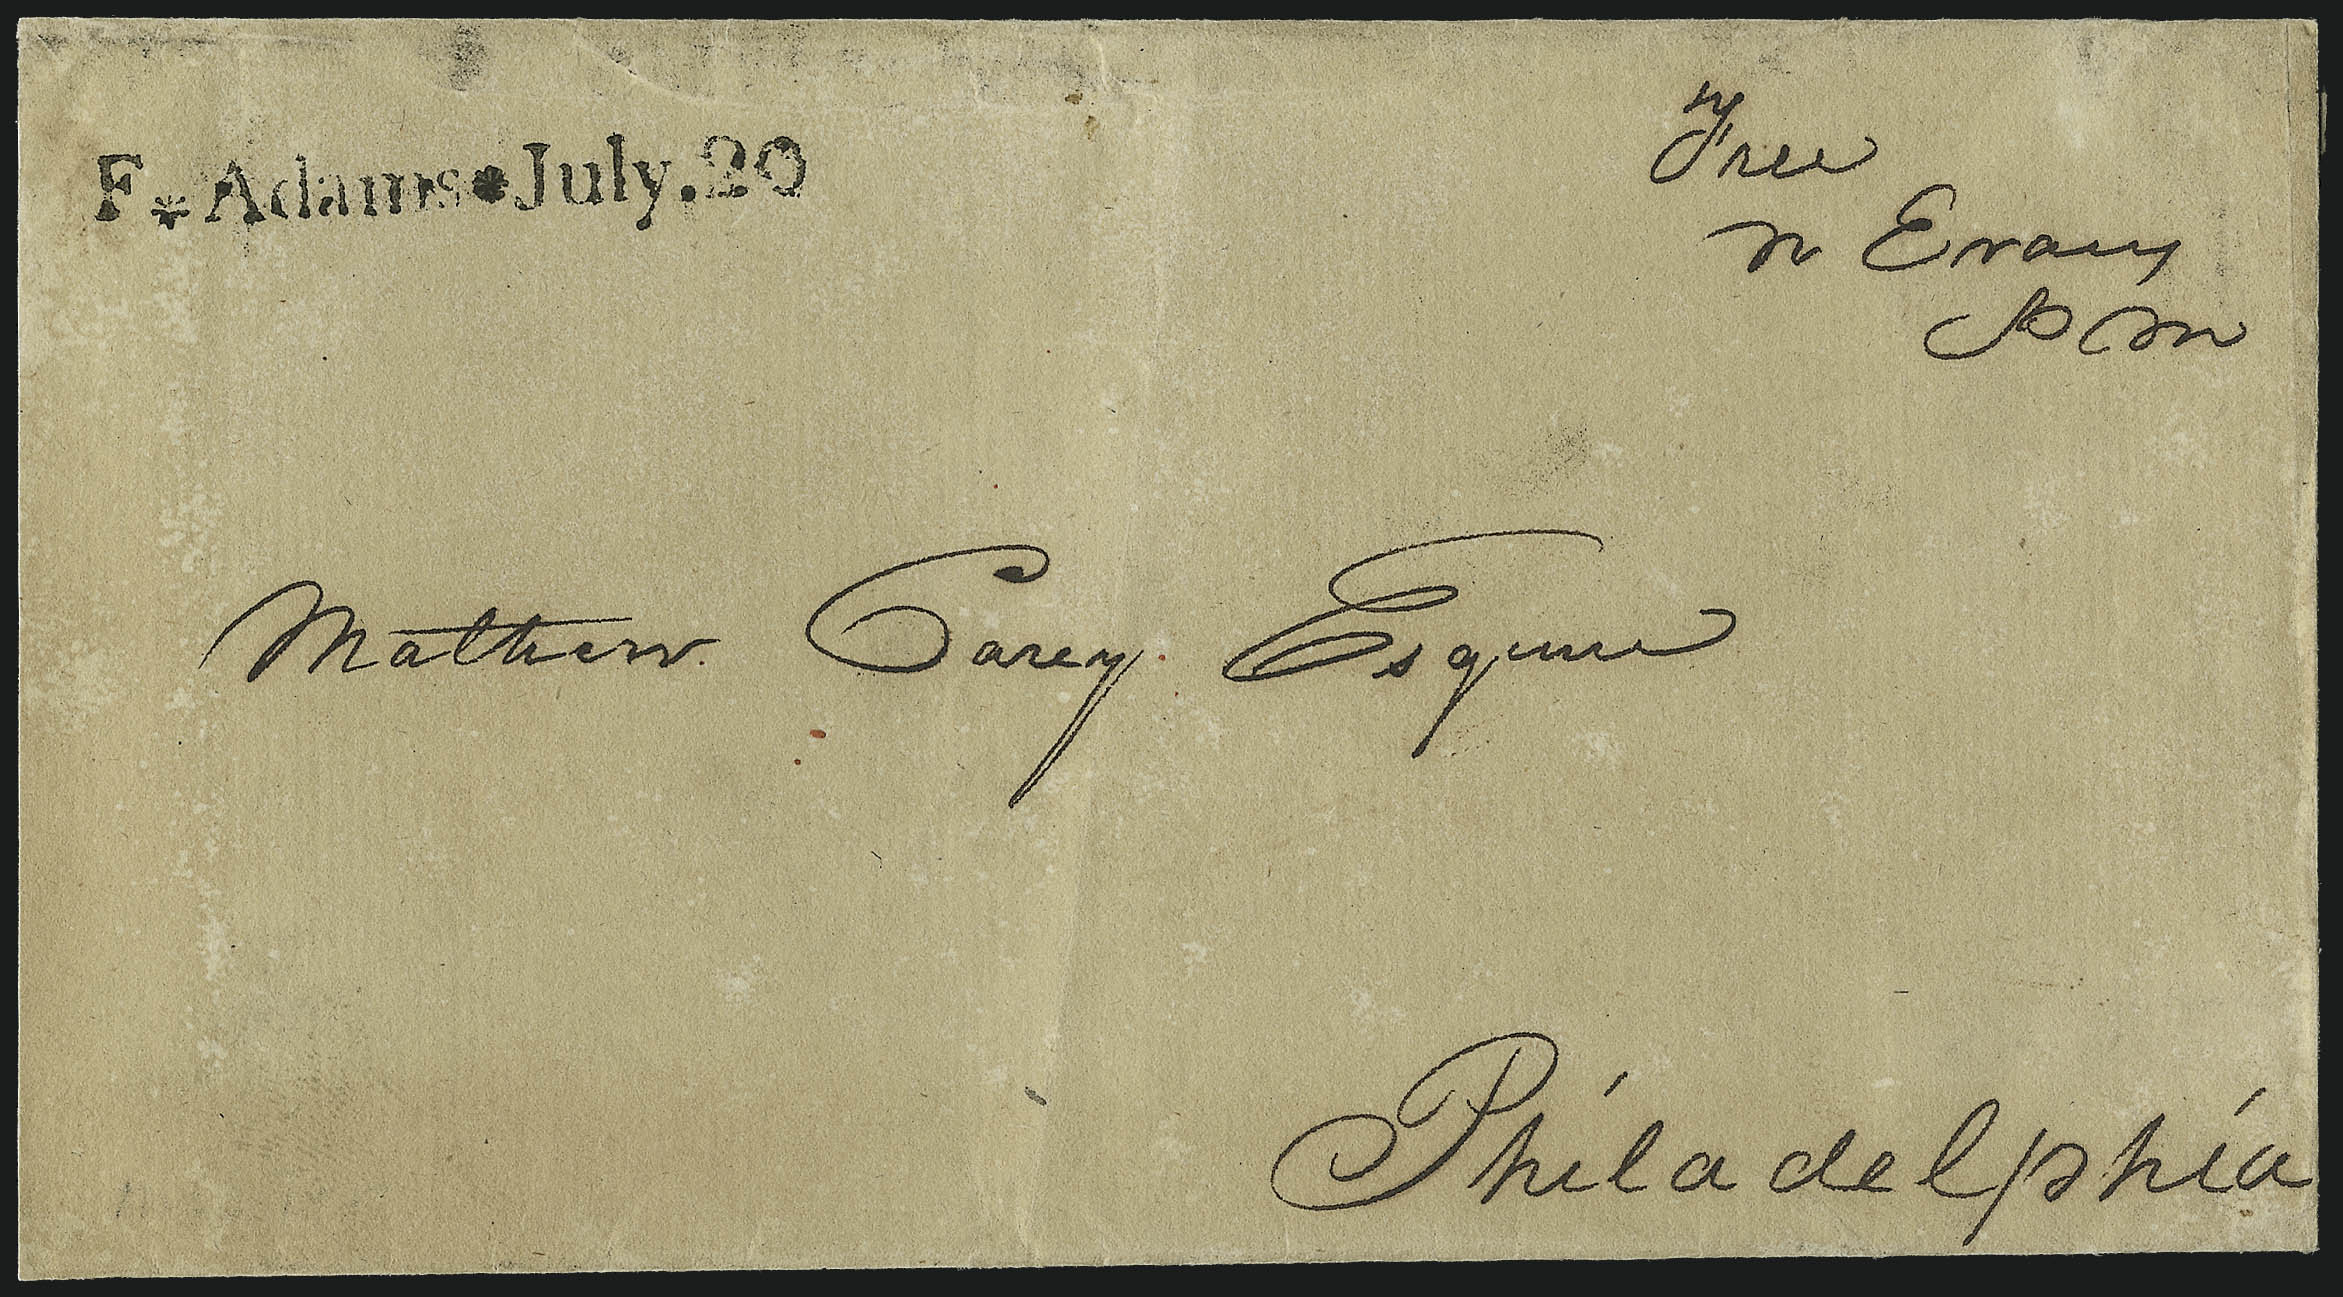 F*Adams*July.20
Free
N Evans
P M
Mathew. Carey. Esquire
Philadelphia